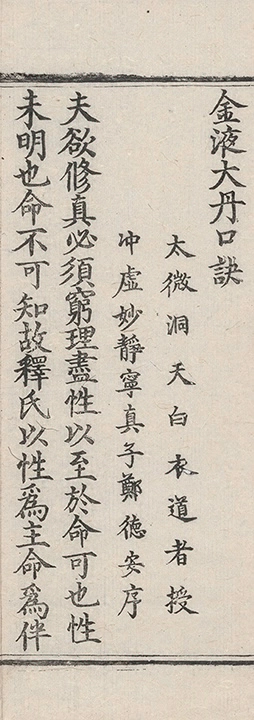 金液大丹口訣
太微洞天白衣道者授
冲虛妙靜寧真子鄭德安序
夫欲修真必須窮理盡性以至於命可也性
未明也命不可知故釋氏以性爲主命爲伴